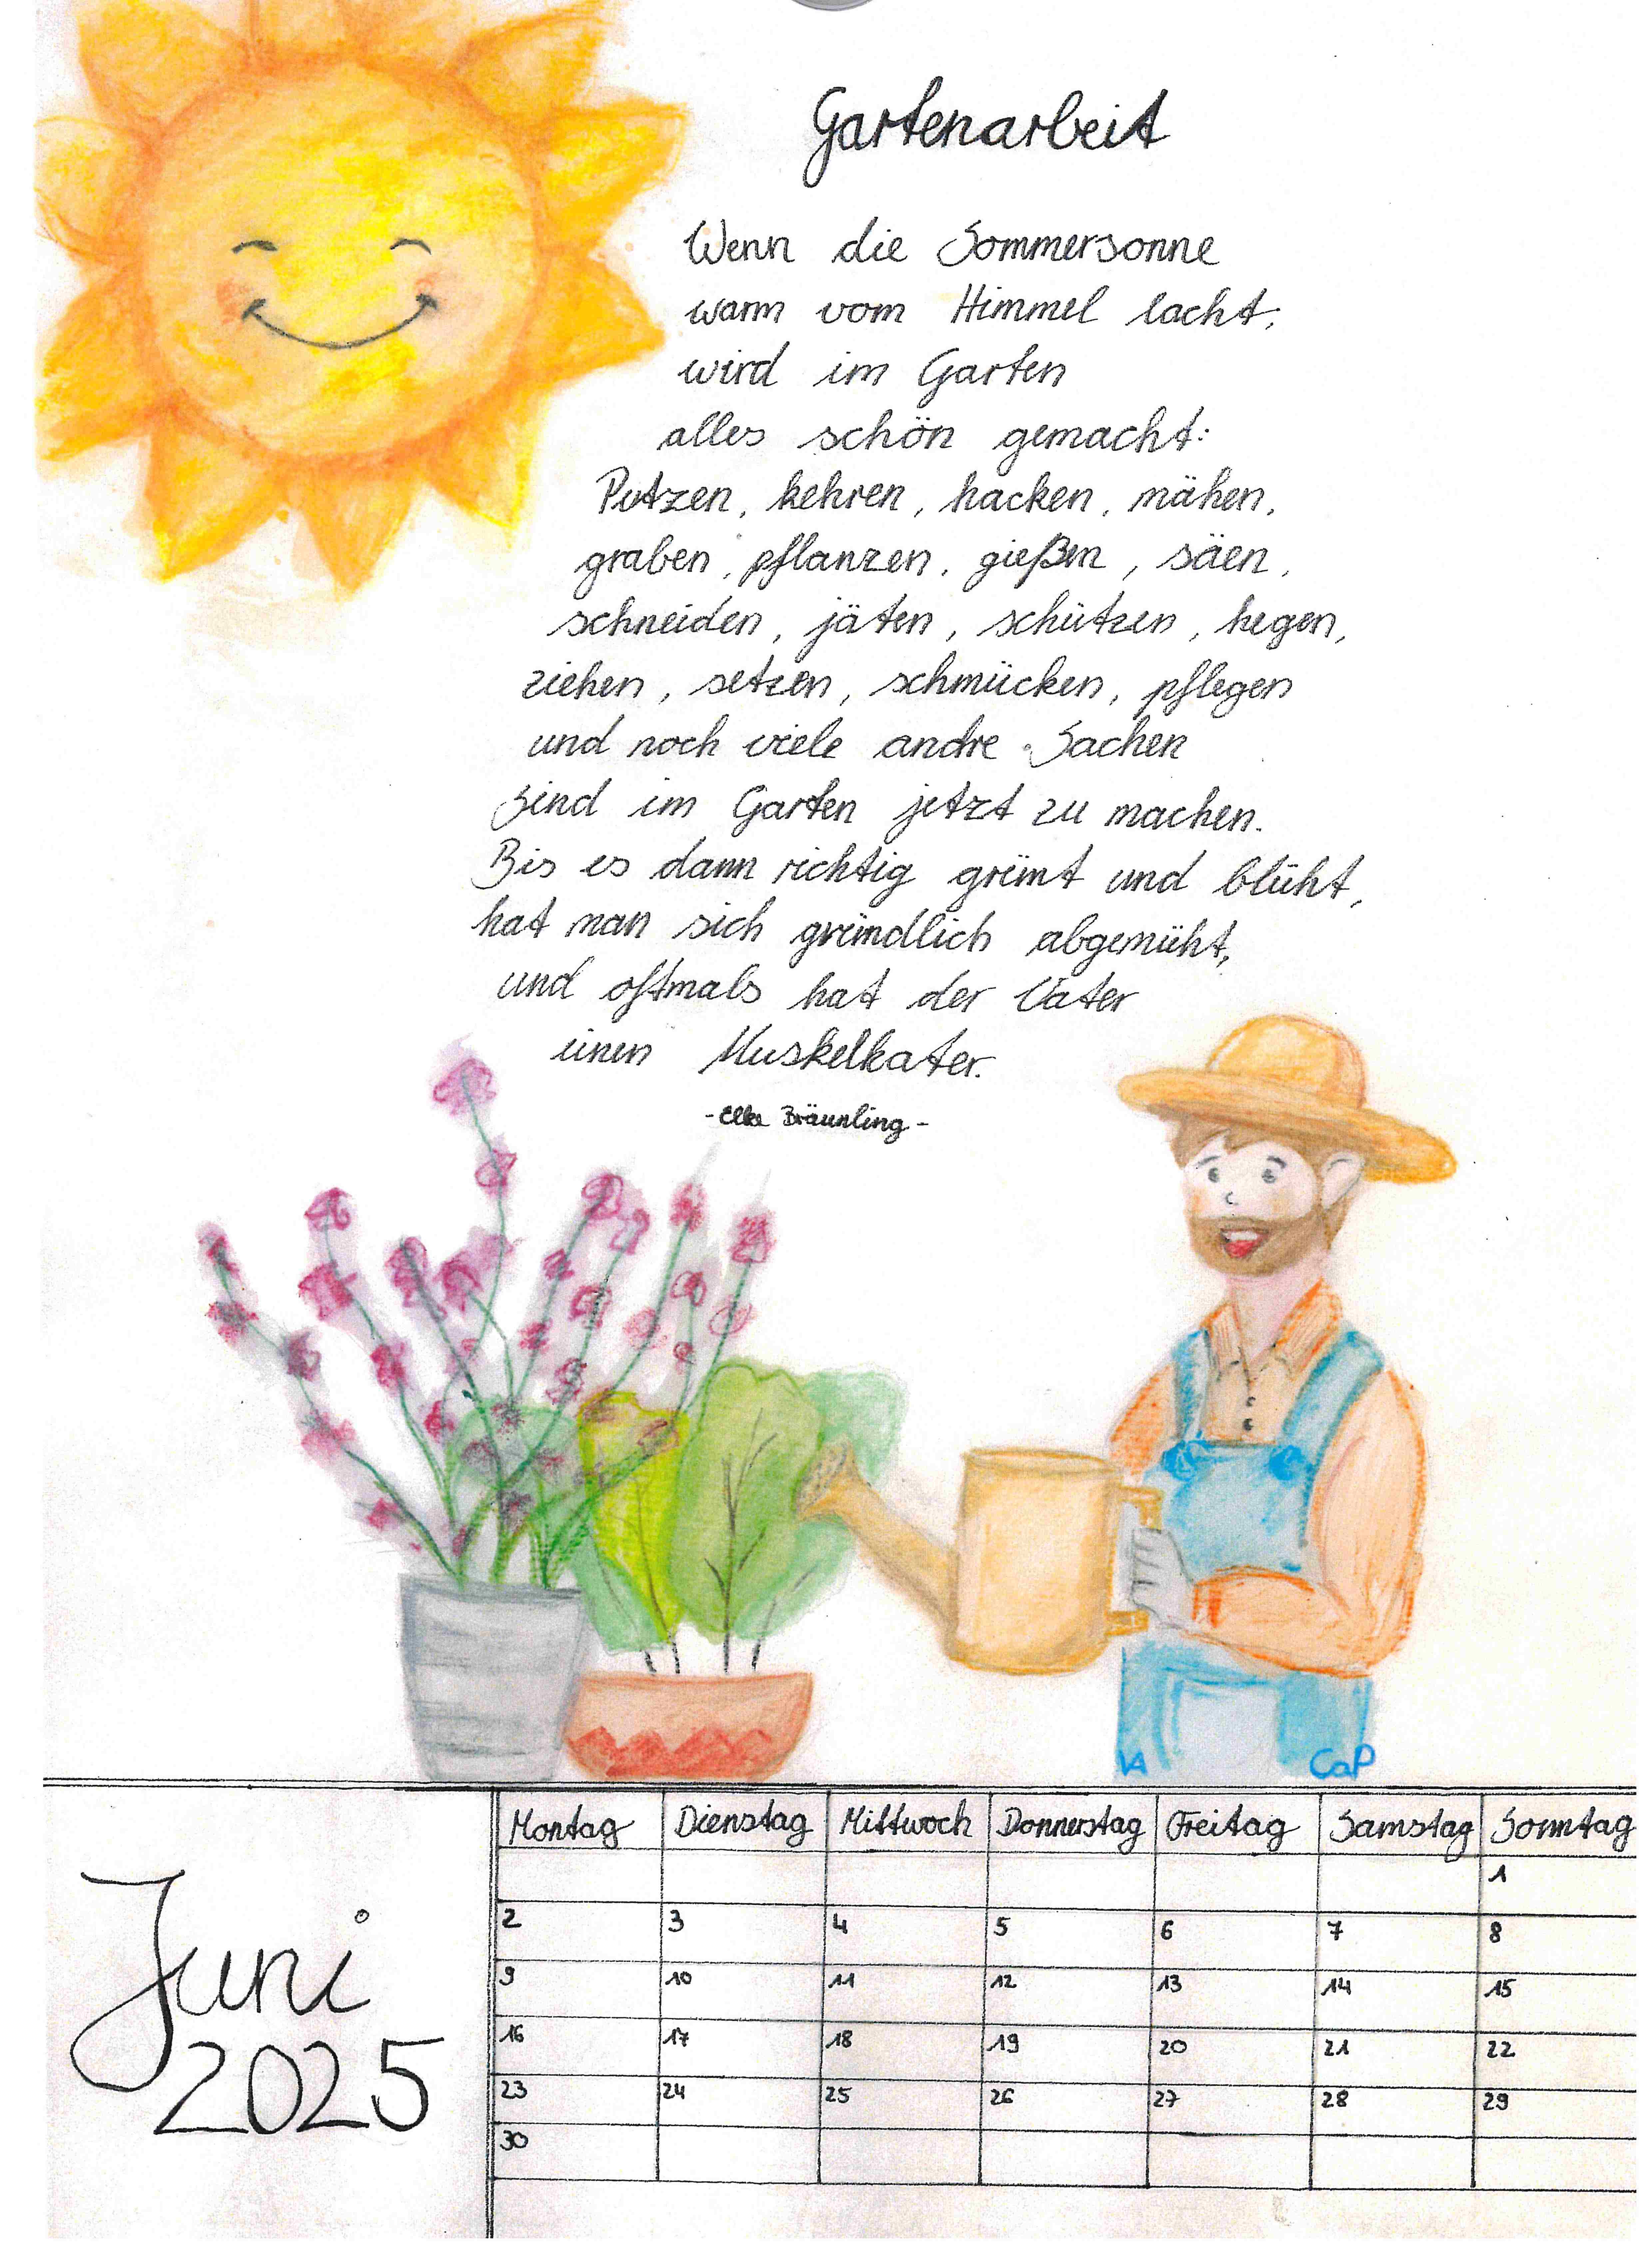 Gartenarbeit
Wenn die Sommersonne
warm vom Himmel lacht,
wird im Garten
alles schön gemacht:
Putzen, kehren, hacken, mähen,
graben, pflanzen, gießen, säen,
schneiden, jäten, schützen, hegen,
ziehen, setzen, schmücken, pflegen
und noch viele andre Sachen
sind im Garten jetzt zu machen.
Bis es dann richtig grünt und blüht,
hat man sich gründlich abgemüht,
und oftmals hat der Vater
einen Muskelkater.
- Elke Bräunling -
VA CaP
Montag Dienstag Mittwoch Donnerstag Freitag Samstag Sonntag
1
2 3 4 5 6 7 8
9 10 11 12 13 14 15
16 17 18 19 20 21 22
23 24 25 26 27 28 29
30
Juni
2025